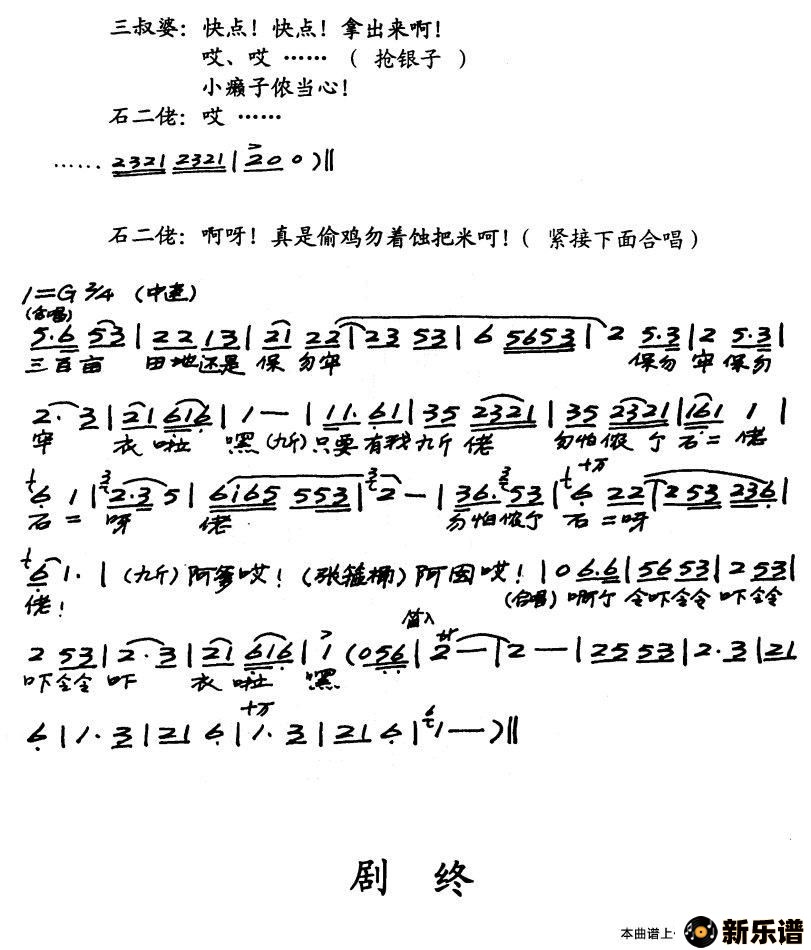 三叔婆：快点！快点！拿出来啊！
哎、哎 ……（ 抢银子 ）
小癞子侬当心！
石二佬：哎 ……
…… 2321 2321 | 20 0 )‖
石二佬：啊呀！真是偷鸡勿着蚀把米呵！（ 紧接下面合唱）
1=G 2/4 （中速）
（合唱）
5·6 53 | 22 13 | 21 22 | 23 53 | 6 5653 | 2 5·3 | 2 5·3 |
三百亩 田地还是 保 勿牢 保勿 牢 保勿
2· 3 | 21 616 | 1 — | 11· 61 | 35 2321 | 35 2321 | 161 1 |
牢 衣 啦 嘿 （九斤）只要有我九斤 佬 勿怕侬 个 石二 佬
6 1 | 2·3 5 | 6165 553 | 2 — | 36· 53 | 6 22 | 2 53 236 |
石二 呀 佬 勿怕侬个 石二呀
6 1· | （九斤）阿爹哎！（张箍桶）阿囡哎！| 0 6·6 | 56 53 | 2 53 |
佬！ （合唱） 啊个 令吓令令 吓令令
2 53 | 2·3 | 21 616 | 1 (056 | 2 — | 2 — | 25 53 | 2·3 | 21
吓令令 吓 衣 啦 嘿
6 | 1· 3 | 21 6 | 1· 3 | 21 6 | 1 — )‖
剧 终
本曲谱上· 新乐谱